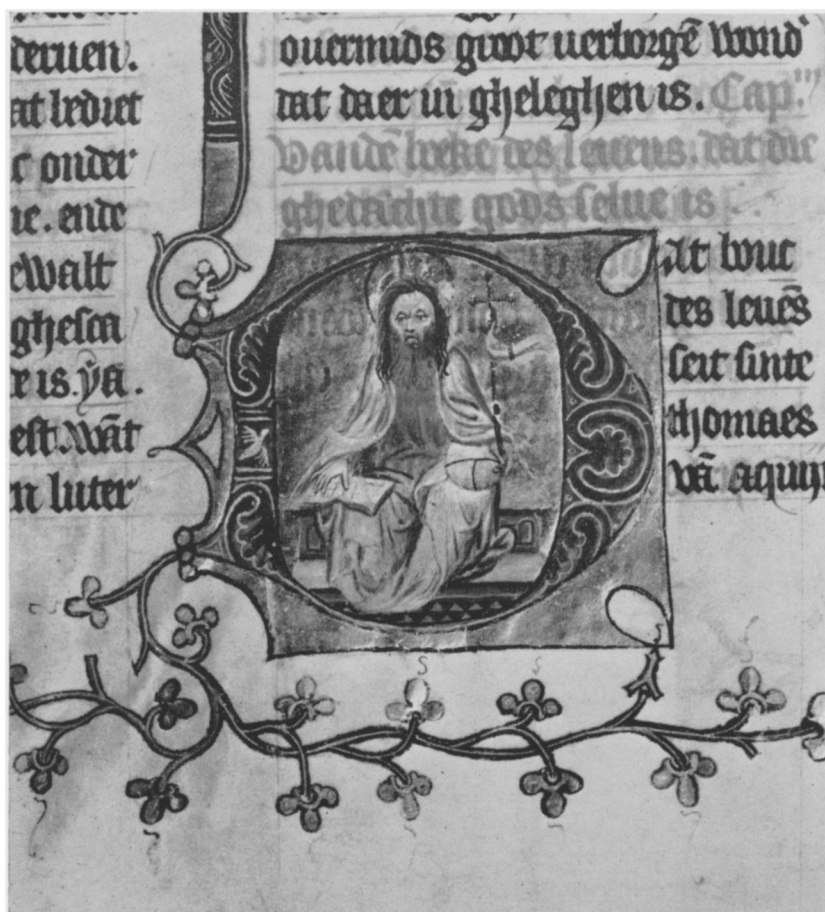 deruen.
at bediet
c onder
ie. ende
ewalt
ghesca
e is. ẏa.
est. wāt
n luter
ouermids groot uerborgē wond'
dat daer in gheleghen is. Cap.
Vandē boeke des leuens. dat die
ghedachte gods selue is
at bouc
des leuēs
seit sinte
thomaes
vā aquin